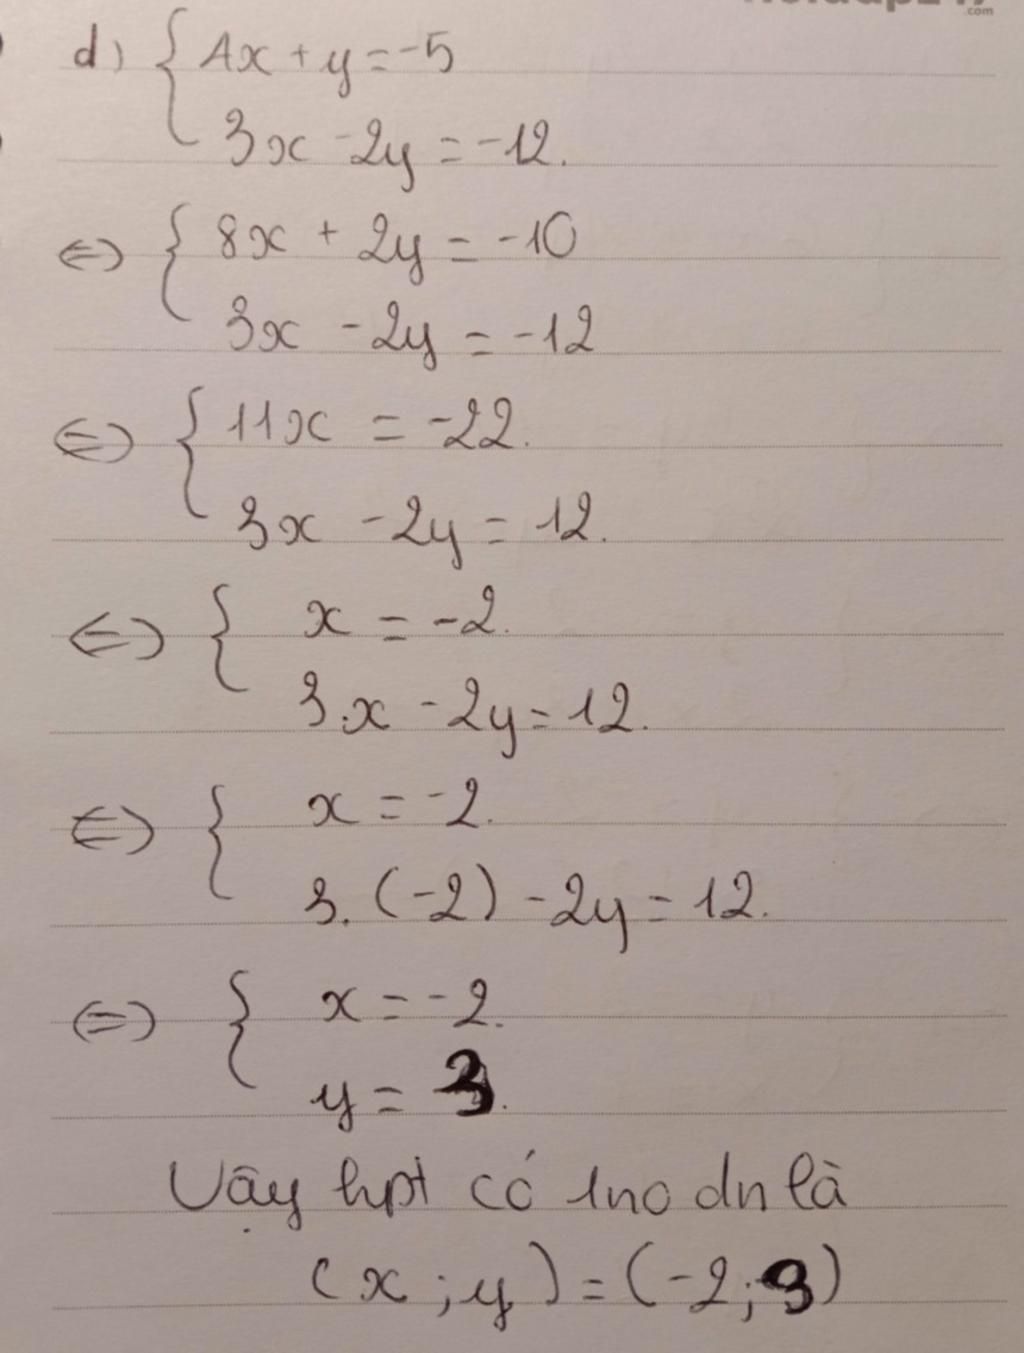 .com
d) { 4x + y = -5
3x - 2y = -12.
⇔ { 8x + 2y = -10
3x - 2y = -12
⇔ { 11x = -22.
3x - 2y = 12.
⇔ { x = -2.
3.x - 2y = 12.
⇔ { x = -2.
3.(-2) - 2y = 12.
⇔ { x = -2.
y = 3.
Vậy hpt có 1no dn là
(x ; y) = (-2; 3)